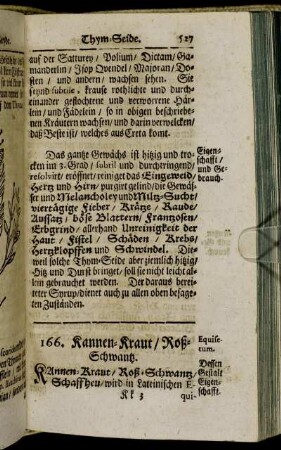 Thym-Seide. 527
auf der Satturey/ Polium/ Dictam/ Ga-
manderlin/ Jsop Qvendel/ Majoran/ Do-
sten/ und andern/ wachsen sehen. Sie
seynd subtile, krause röthlichte und durch-
einander geflochtene und verworrene Här-
lein/ und Fädelein/ so in obigen beschriebe-
nen Kräutern wachsen/ und darin verwelcken/
daß Beste ist/ welches aus Creta komt.
Das gantze Gewächs ist hitzig und tro-
cken im 3. Grad/ subtil und durchtringend/
resolvirt/ eröffnet/ reiniget das Eingeweid/
Hertz und Hirn/ purgirt gelind/ die Gewäs-
ser und Melancholey und Miltz-Sucht/
viertägige Fieber/ Krätze/ Raude/
Aussatz/ böse Blattern/ Frantzosen/
Erbgrind/ allerhand Unreinigkeit der
Haut/ Fistel/ Schäden/ Krebs/
Hertzklopffen und Schwindel. Die-
weil solche Thym-Seide aber ziemlich hitzig
und Durst bringet/ soll sie nicht leicht al-
lein gebrauchet werden. Der daraus berei-
tete Syrup/ dienet auch zu allen oben besag-
ten Zuständen.
Eigen-
schafft/
und Ge-
brauch.
166. Kannen-Kraut/ Roß-
Schwantz.
Kannen-Kraut/ Roß-Schwantz/
Schaffheu/ wird in Lateinischen E-
Kk 3 qui-
Equise-
tum.
Dessen
Gestalt
Eigen-
schafft.